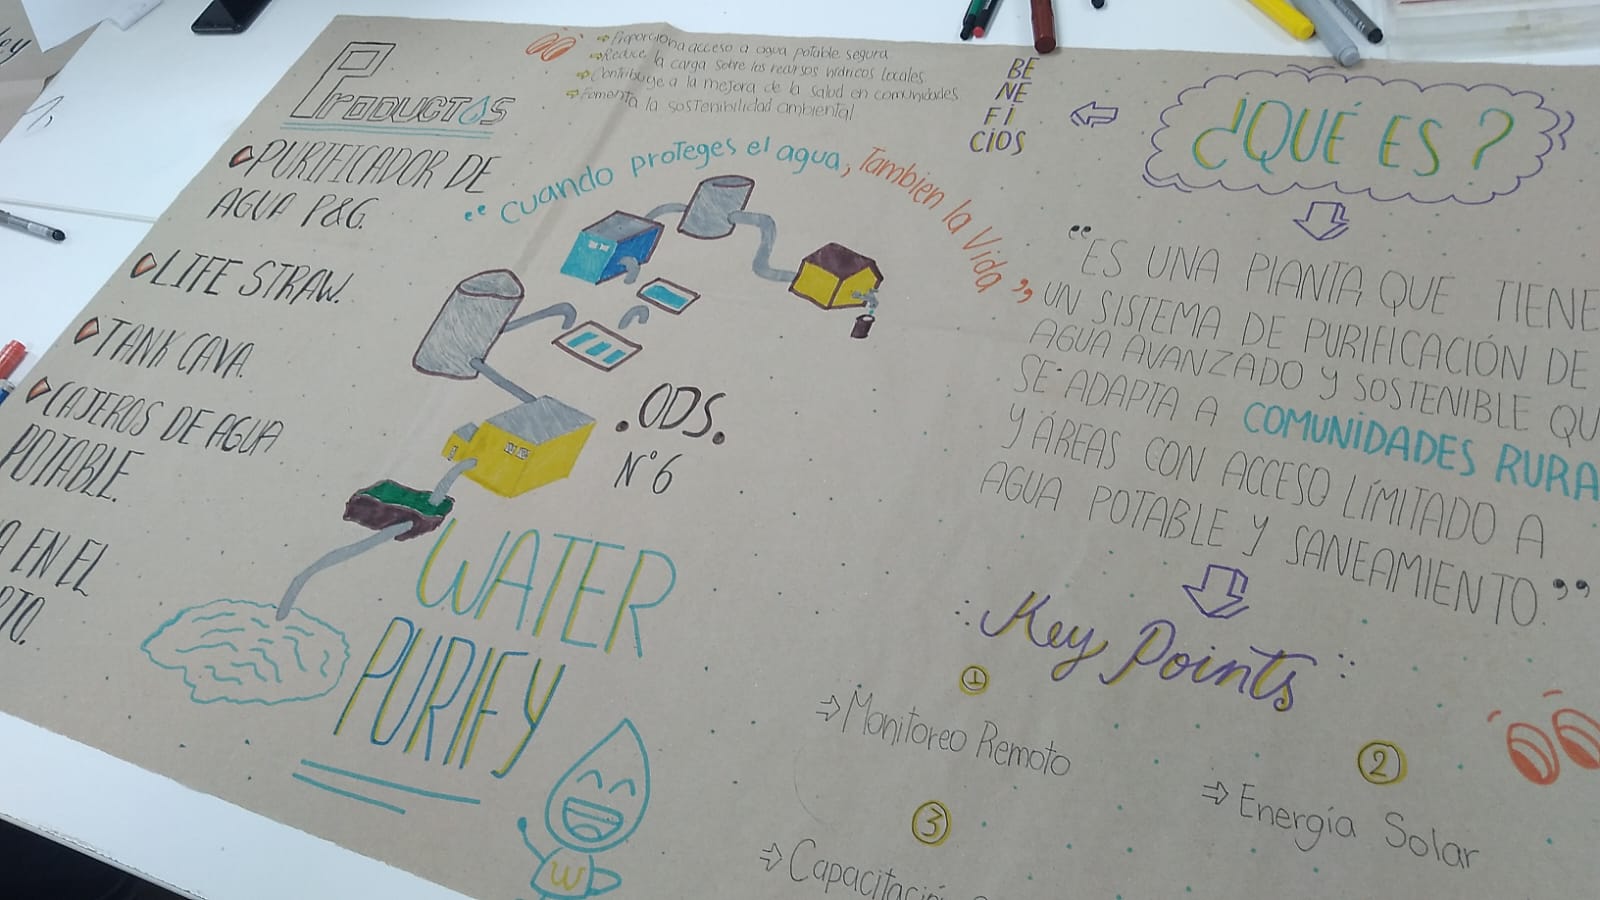 PRODUCTOS
PURIFICADOR DE
AGUA P&G.
LIFE STRAW.
TANK CAVA.
CAJEROS DE AGUA
POTABLE.
EN EL
Proporciona acceso a agua potable segura
Reduce la carga sobre los recursos hídricos locales
Contribuye a la mejora de la salud en comunidades
Fomenta la sostenibilidad ambiental
BE
NE
FI
CIOS
¿QUÉ ES?
"Cuando proteges el agua, Tambien la Vida"
.ODS.
N°6
WATER
PURIFY
W
"ES UNA PLANTA, QUE TIENE
UN SISTEMA DE PURIFICACIÓN DE
AGUA AVANZADO Y SOSTENIBLE QU
SE ADAPTA A COMUNIDADES RURA
Y ÁREAS CON ACCESO LÍMITADO A
AGUA POTABLE Y SANEAMIENTO."
Key Points
1
Monitoreo Remoto
2
Energía Solar
3
Capacitación